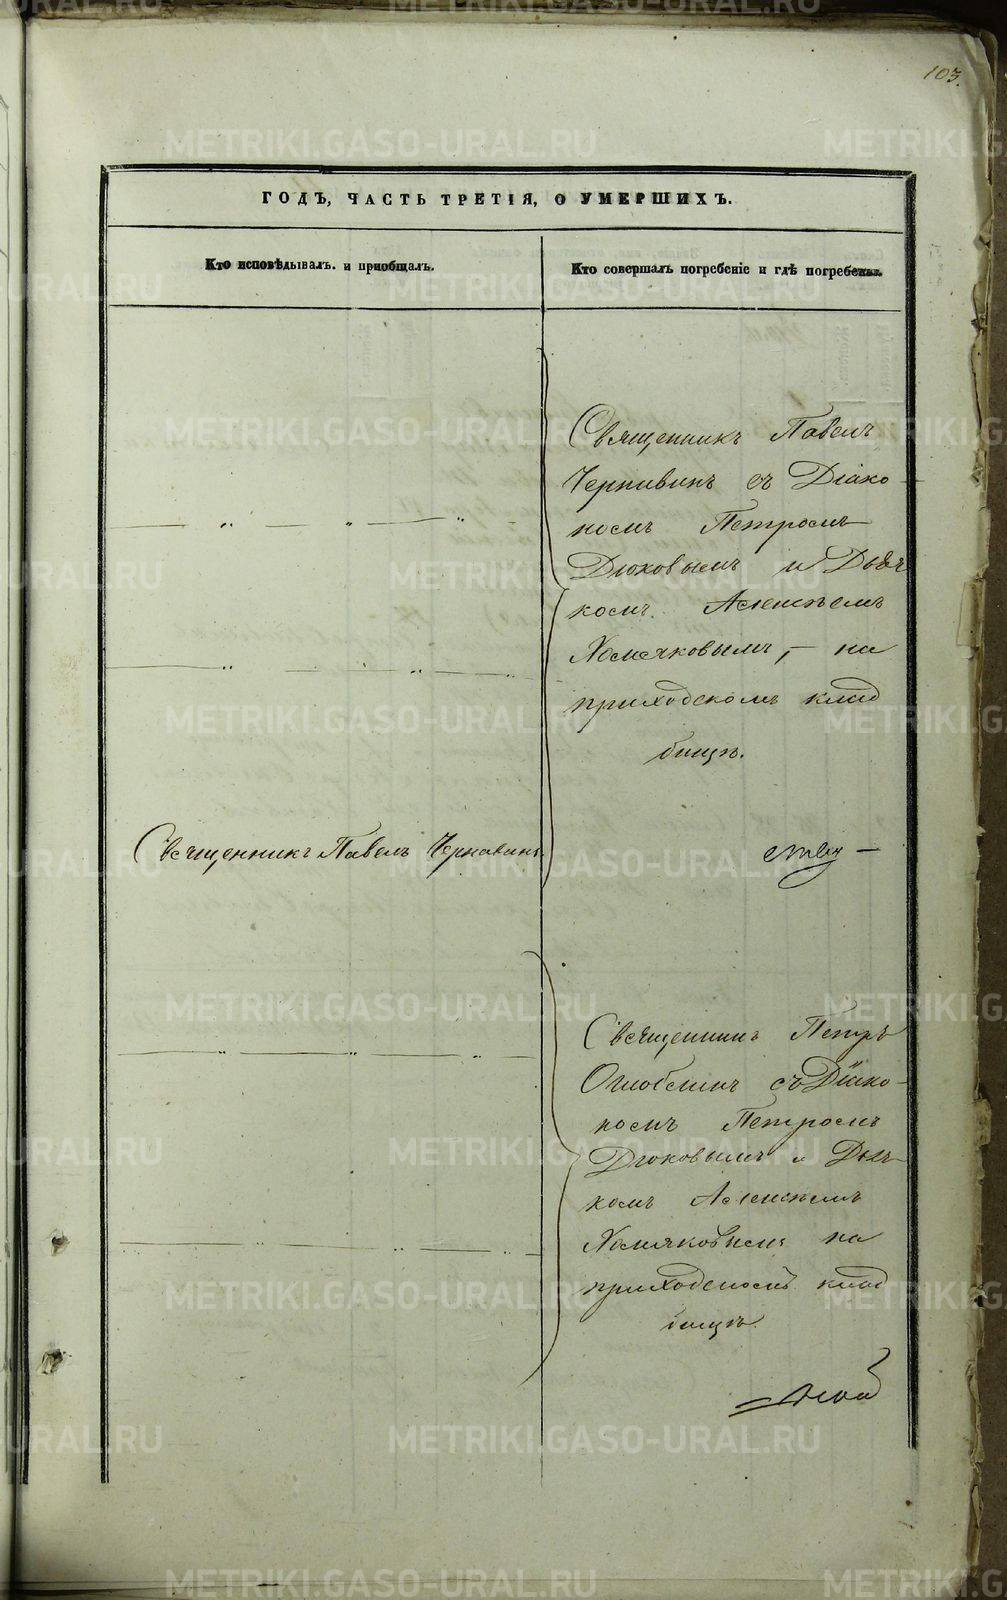 103.
ГОДЪ, ЧАСТЬ ТРЕТІЯ, О УМЕРШИХЪ.
Кто исповѣдывалъ и пріобщалъ.
Кто совершалъ погребеніе и гдѣ погребены.
Священникъ Павелъ
Чернавинъ съ Діако-
номъ Петромъ
Дюковымъ и Дьяч
комъ Алексѣемъ
Хомяковымъ, — на
приходскомъ клад
бищѣ.
Священникъ Павелъ Чернавинъ.
Священникъ Петръ
съ Діако-
номъ Петромъ
Дюковымъ и Дьяч-
комъ Алексѣемъ
Хомяковымъ на
приходскомъ клад
бищѣ.
METRIKI.GASO-URAL.RU